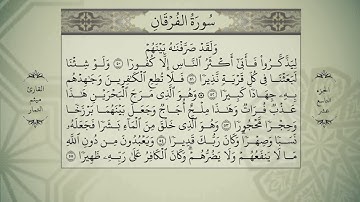 سُورَةُ الْفُرْقَانِ
وَلَقَدْ صَرَّفْنَاهُ بَيْنَهُمْ
لِيَذَّكَّرُوا فَأَبَىٰ أَكْثَرُ النَّاسِ إِلَّا كُفُورًا ٥٠ وَلَوْ شِئْنَا
لَبَعَثْنَا فِي كُلِّ قَرْيَةٍ نَّذِيرًا ٥١ فَلَا تُطِعِ الْكَافِرِينَ وَجَاهِدْهُم
بِهِ جِهَادًا كَبِيرًا ٥٢ وَهُوَ الَّذِي مَرَجَ الْبَحْرَيْنِ هَٰذَا
عَذْبٌ فُرَاتٌ وَهَٰذَا مِلْحٌ أُجَاجٌ وَجَعَلَ بَيْنَهُمَا بَرْزَخًا
وَحِجْرًا مَّحْجُورًا ٥٣ وَهُوَ الَّذِي خَلَقَ مِنَ الْمَاءِ بَشَرًا فَجَعَلَهُ
نَسَبًا وَصِهْرًا وَكَانَ رَبُّكَ قَدِيرًا ٥٤ وَيَعْبُدُونَ مِن دُونِ اللَّهِ
مَا لَا يَنفَعُهُمْ وَلَا يَضُرُّهُمْ وَكَانَ الْكَافِرُ عَلَىٰ رَبِّهِ ظَهِيرًا ٥٥
الجزء
التاسع
عشر
القارئ
ميثم
التمار